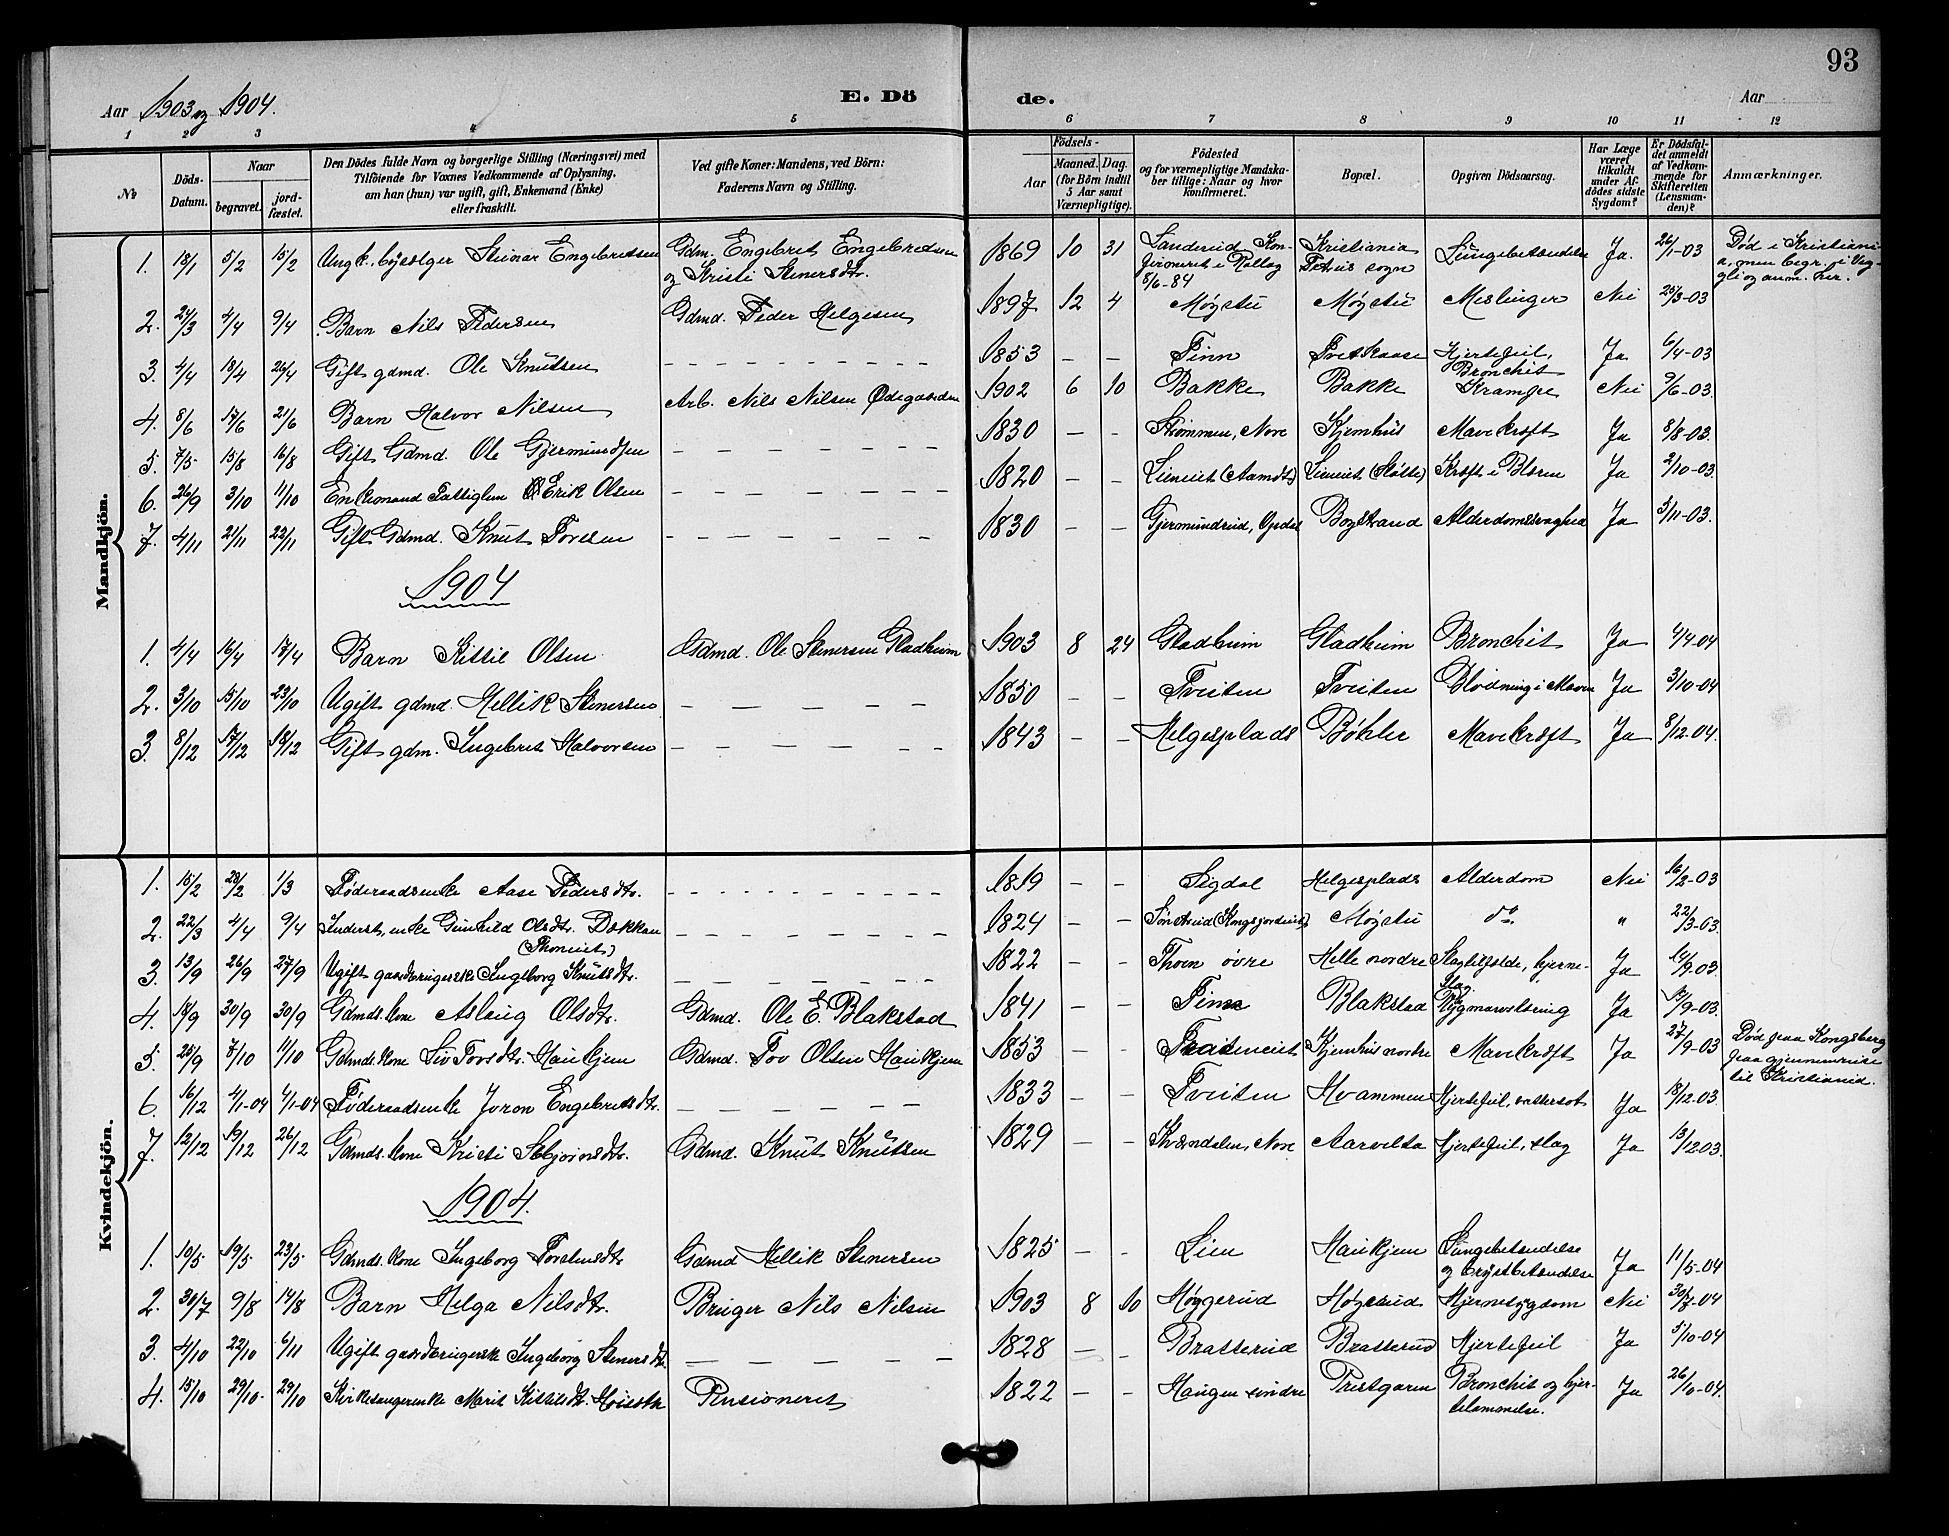 93
Aar 1903 og 1904. E. Dö de. Aar
1 2 3 4 5 6 7 8 9 10 11 12
No
Döds-Datum.
Naar
begravet.
jord-fæstet.
Den Dödes fulde Navn og borgerlige Stilling (Næringsvei) med
Tilföiende for Voxnes Vedkommende af Oplysning.
om han (hun) var ugift, gift, Enkemand (Enke)
eller fraskilt.
Ved gifte Koner: Mandens, ved Börn:
Faderens Navn og Stilling.
Födsels-
Aar
Maaned. Dag.
(for Börn indtil
5 Aar samt
Værnepligtige).
Födested
og for værnepligtige Mandska-
ber tillige: Naar og hvor
konfirmeret.
Bopæl.
Opgiven Dödsaarsag.
Har Læge
været
tilkaldt
under Af-
dödes sidste
Sygdom?
Er Dödsfal-
det anmeldt
af Vedkom-
mende for
Skifteretten
(Lensman-
den)?
Anmærkninger.
Mandkjön.
1. 18/1 5/2 15/2 Ungk. Steinar Engebretsen Gdm. Engebret Engebretsen og Kristi Stenersdtr. 1869 10 31 Landerud Kon-firmeret i Rollag 8/6-84 Kristiania Petrus sogn Lungebetændelse Ja. 26/1-03 Död i Kristiani-a, men begr. i Veg-gli og anm. her.
2. 24/3 4/4 9/4 Barn Nils Pedersen Gdmd. Peder Helgesen 1897 12 4 Møystu Møystu Meslinger Nei 25/3-03
3. 4/4 18/4 26/4 Gift gdmd. Ole Knutsen - - - 1853 - - Finn Hjertefeil, Bronchit Ja 6/4-03
4. 8/6 17/6 21/6 Barn Halvor Nilsen Arb. Nils Nilsen Ødegaarden 1902 6 10 Bakke Bakke Krampe Nei 9/6-03.
5. 7/5 15/8 16/8 Gift Gdmd. Ole Gjermundsen - - - 1830 - - Strømmen, Nore Kjemhus Mavekræft Ja 8/8-03.
6. 26/9 3/10 11/10 Enkemand Fattiglem Erik Olsen - - - 1820 - - Lieneiet (Aamdt) Lieneiet Kræft i Blæren Ja 2/10-03.
7. 4/11 21/11 22/11 Gift Gdmd. Knut Toresen - - - 1830 - - Gjermundrud, Opdal Bogstrand Alderdomssvaghed Ja 5/11-03.
1904
1. 4/4 16/4 17/4 Barn Kittil Olsen Gdmd. Ole Stenersen Gladheim 1903 8 24 Gladheim Gladheim Bronchit Ja 4/4-04
2. 3/10 15/10 23/10 Ugift gdmd. Hellik Stenersen - - - 1850 - - Tveiten Tveiten Blødning i Maven Ja 3/10-04
3. 8/12 17/12 18/12 Gift gdm. Ingebret Halvorsen - - - 1843 - - Helgesplads Bøhler Mavekræft Ja 8/12-04.
Kvindekjön.
1. 15/2 28/2 1/3 Føderaadsenke Aase Pedersdtr. - - - 1819 - - Sigdal Helgesplads Alderdom Nei 16/2-03
2. 22/3 4/4 9/4 Inderst, enke Gunhild Olsdtr. Bakkan (Thoneiet) - - - 1824 - - Møystu do. " 22/3-03.
3. 13/9 26/9 27/9 Ugift gaardbrugerske Ingeborg Knutsdtr. - - - 1822 - - Thoen øvre Helle nordre Slagtilfælde, hjerne-slag Ja 14/9-03.
4. 18/9 30/9 30/9 Gdmds. kone Aslaug Olsdtr. Gdmd. Ole E. Blakstad 1841 - - Finn Blakstad Rygmarvslidning Ja 19/9-03.
5. 25/9 7/10 11/10 Gdmds. kone Siv Torsdtr. Haukjem Gdmd. Tov Olsen Haukjem 1853 - - Kjemhus nordre Mavekræft Ja 27/9-03 Död paa Kongsberg paa gjennemreise til Kristiania.
6. 16/12 4/1-04 4/1-04 Føderaadsenke Joron Engebretsdtr. - - - 1833 - - Tveiten Hvammen Hjertefeil, vattersot Ja 18/12-03
7. 12/12 19/12 26/12 Gdmds. kone Kristi Asbjørnsdtr. Gdmd. Knut Knutsen 1829 - - Kvændalen, Nore Aarvelta Hjertefeil, slag Ja 13/12-03.
1904.
1. 10/5 19/5 23/5 Gdmds. kone Ingeborg Torstensdtr. Gdmd Hellik Stenersen 1825 - - Lien Haukjem Lungebetændelse og brystbetændelse Ja 11/5-04
2. 30/7 9/8 14/8 Barn Helga Nilsdtr. Bruger Nils Nilsen 1903 8 10 Høgerud Høgerud Hjernesygdom Nei 30/7-04
3. 4/10 22/10 6/11 Ugift gaardbrugerske Ingeborg Stenersdtr. - - - 1828 - - Bratterud Bratterud Hjertefeil Ja 5/10-04
4. 15/10 29/10 29/10 Kirkesangerenke Marit Kittilsdtr. Pensioneret 1822 - - Haugen søndre Prestgaren Bronchit og hjer-telammelse. Ja 26/10-04.